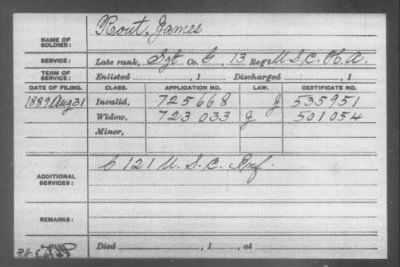 NAME OF SOLDIER: Rout, James
SERVICE: Late rank, Sgt Co. G, 13 Reg't U.S.C.H.A.
TERM OF SERVICE: Enlisted , 1 Discharged , 1
DATE OF FILING. CLASS. APPLICATION NO. LAW. CERTIFICATE NO.
1889 Aug 31 Invalid, 725668 g 535951
Widow, 723033 g 501054
Minor,
ADDITIONAL SERVICES: G 121 U.S.C. Inf.
REMARKS:
Died , 1 , at